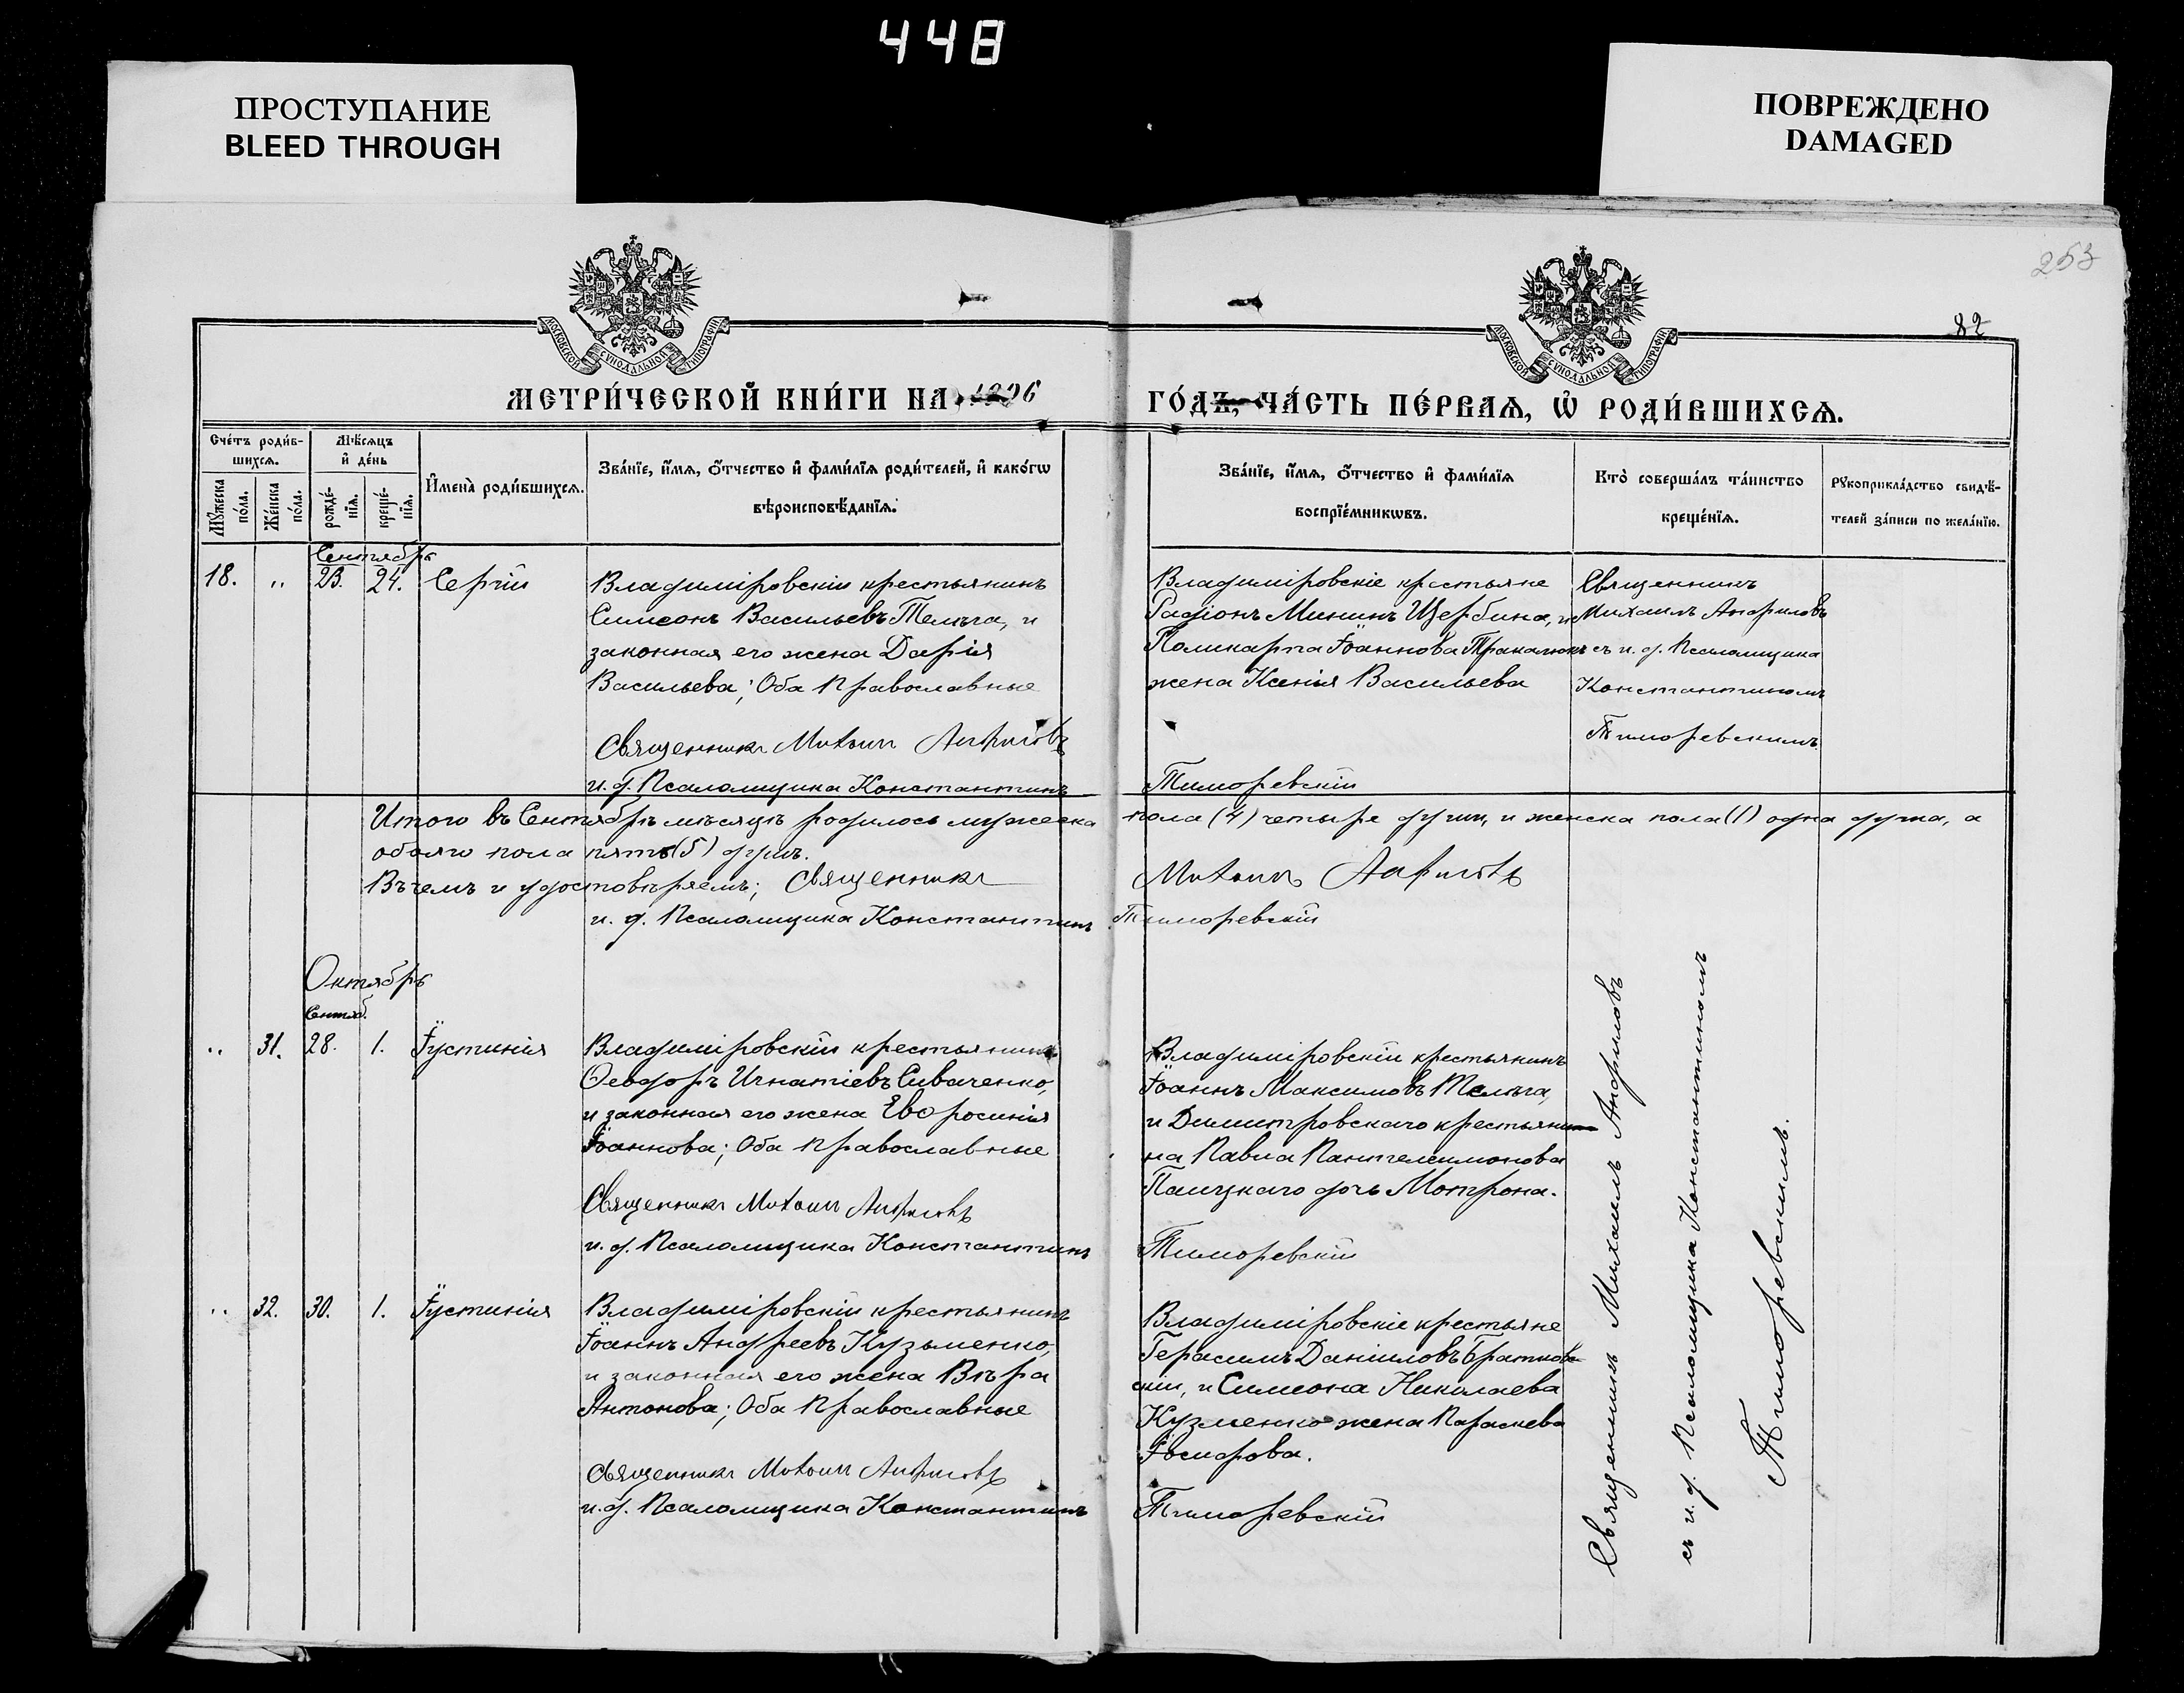 448
ПРОСТУПАНИЕ
BLEED THROUGH
ПОВРЕЖДЕНО
DAMAGED
253
82
МОСКОВСКОЙ СѴНОДАЛЬНОЙ ТИПОГРАФІИ
МОСКОВСКОЙ СѴНОДАЛЬНОЙ ТИПОГРАФІИ
МЕТРИ́ЧЕСКОЙ КНИ́ГИ НА 1896 ГО́ДЪ, ЧА́СТЬ ПЕ́РВАѦ, Ѡ РОДИ́ВШИХСѦ.
Сче́тъ роди́в-
шихсѧ.
Мѣ́сѧцъ
и де́нь
Мꙋ́жеска по́ла.
Же́нска по́ла.
рожде́-
нїѧ.
креще́-
нїѧ.
Имена̀ роди́вшихсѧ.
Зва́нїе, и́мѧ, о́тчество и фами́лїѧ роди́телей, и како́гѡ
вѣроисповѣ́данїѧ.
Зва́нїе, и́мѧ, о́тчество и фами́лїѧ
воспрїе́мникѡвъ.
Кто̀ соверша́лъ та́инство
креще́нїѧ.
Рꙋкоприкла́дство свидѣ́-
телей за́писи по жела́нїю.
Сентябрь
18. " 23. 24. Сергій
Владиміровскій крестьянинъ
Симеонъ Васильевъ Телыга, и
законная его жена Дарія
Васильева; Оба Православные
Священникъ Михаилъ Анфиловъ
и. д. Псаломщика Константинъ Тиморевскій
Владиміровскіе крестьяне
Радіонъ Мининъ Щербина, и
Поликарпа Іоаннова Тракалюкъ
жена Ксенія Васильева
Священникъ
Михаилъ Анфиловъ
съ и. д. Псаломщика
Константиномъ
Тиморевскимъ
Итого въ Сентябрѣ мѣсяцѣ родилось мужеска пола (4) четыре души, и женска пола (1) одна душа, а
обоего пола пять (5) душъ.
Въ чемъ и удостовѣряемъ; Священникъ Михаилъ Анфиловъ
и. д. Псаломщика Константинъ Тиморевскій
Октябрь
Сентяб.
" 31. 28. 1. Іустинія
Владиміровскій крестьянинъ
Ѳеодоръ Игнатіевъ Сиваченко,
и законная его жена Евѳросинія
Іоаннова; Оба Православные
Священникъ Михаилъ Анфиловъ
и. д. Псаломщика Константинъ Тиморевскій
Владиміровскій крестьянинъ
Іоаннъ Максимовъ Телыга,
и Димитровскаго крестьяни
на Павла Пантелеимонова
Палицкаго дочь Мотрона.
" 32. 30. 1. Іустинія
Владиміровскій крестьянинъ
Іоаннъ Андреевъ Кузьменко,
и законная его жена Вѣра
Антонова; Оба Православные
Священникъ Михаилъ Анфиловъ
и. д. Псаломщика Константинъ Тиморевскій
Владиміровскіе крестьяне
Герасимъ Даніиловъ Братков
скій, и Симеона Николаева
Кузменко жена Параскева
Іосифова.
Священникъ Михаилъ Анфиловъ
съ и. д. Псаломщика Константиномъ
Тиморевскимъ.